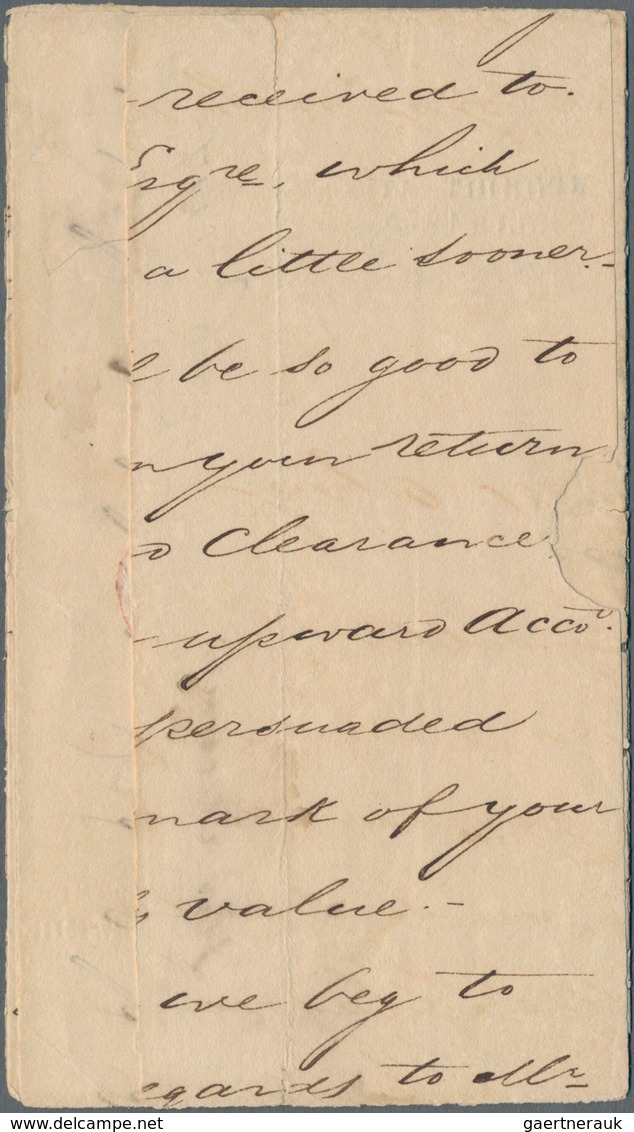 received to.
Esqre, which
a little sooner.-
be so good to
your return
Clearance.
upward Acco.
persuaded
mark of your
value.-
we beg to
egards to Mr
gaertnerauk